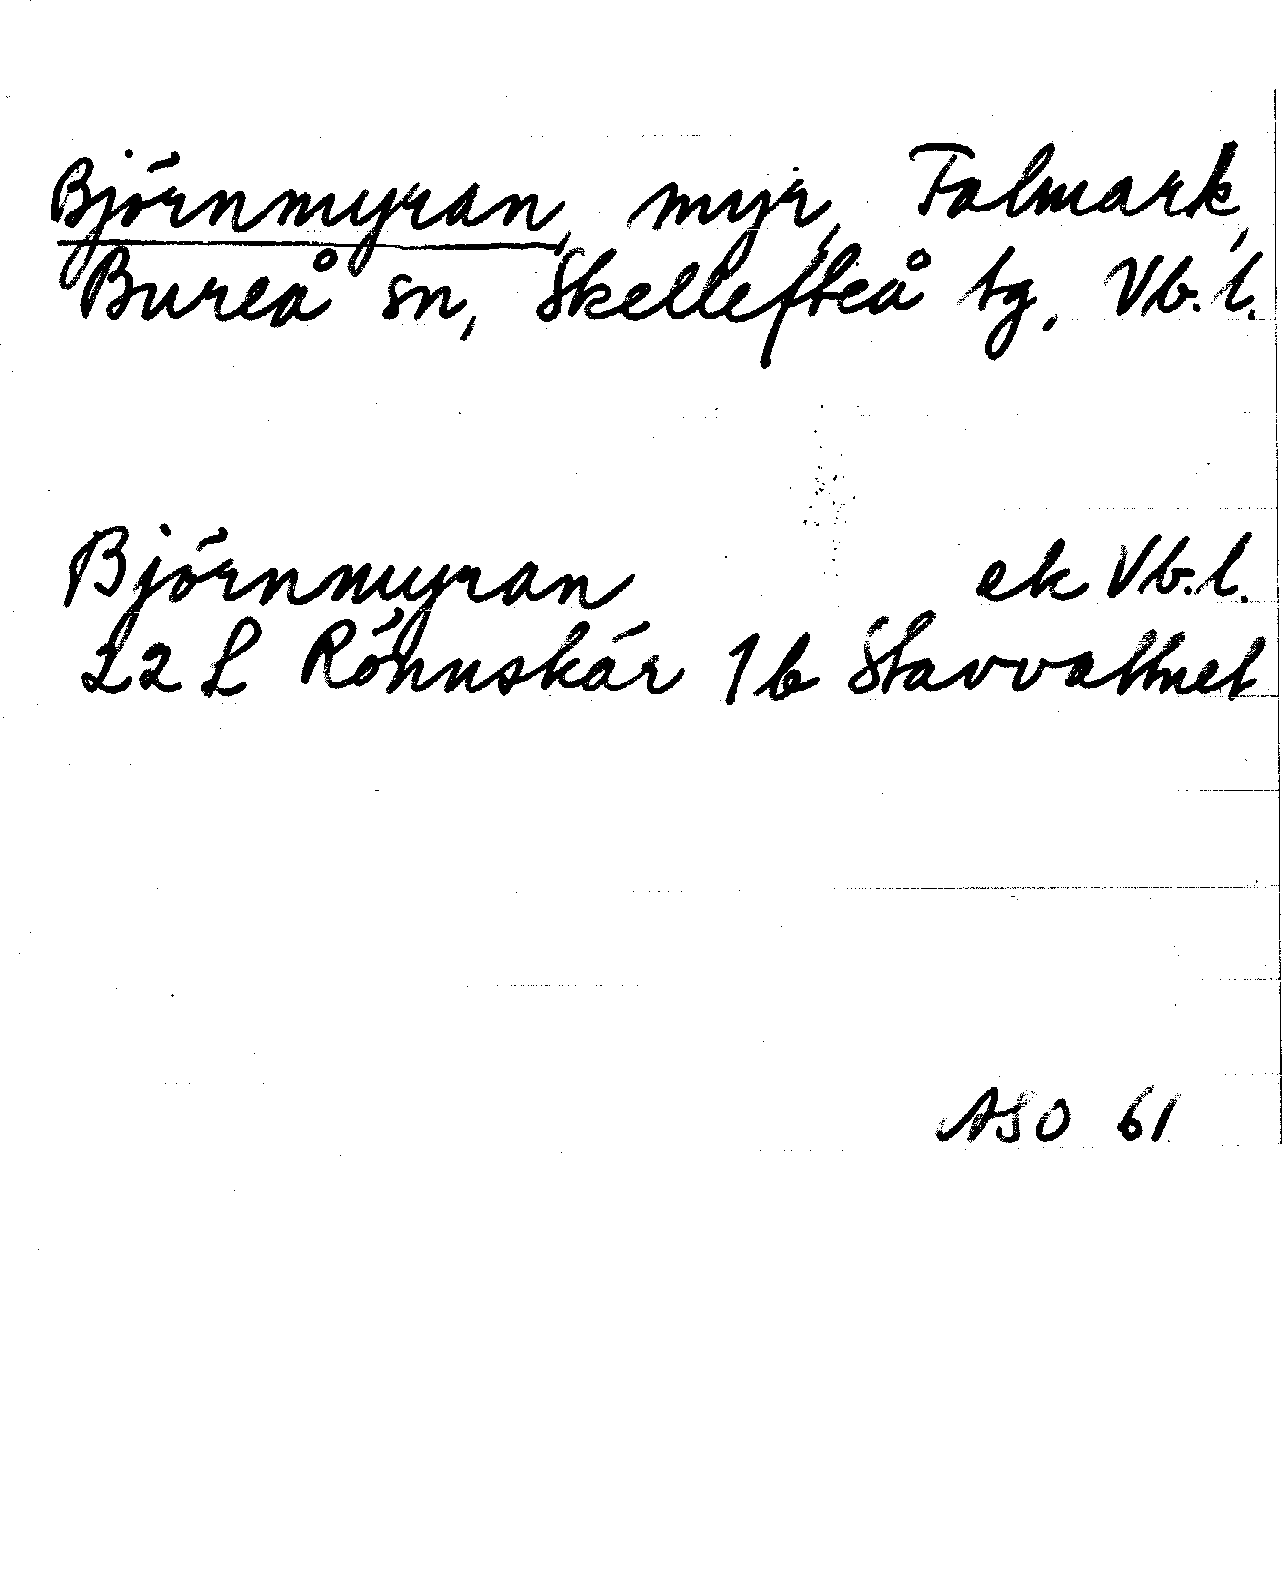 Björnmyran, myr, Falmark,
Bureå sn, Skellefteå tg, Vb.l.
Björnmyran ek Vb.l.
22 L Rönnskär 1b Stavvattnet
ASO 61